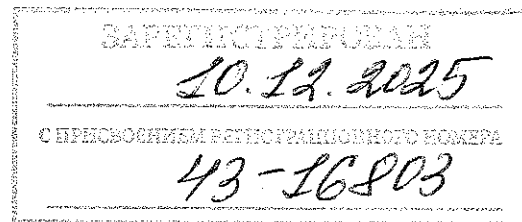 ЗАРЕГИСТРИРОВАН
10.12.2025
С ПРИСВОЕНИЕМ РЕГИСТРАЦИОННОГО НОМЕРА
43-16803